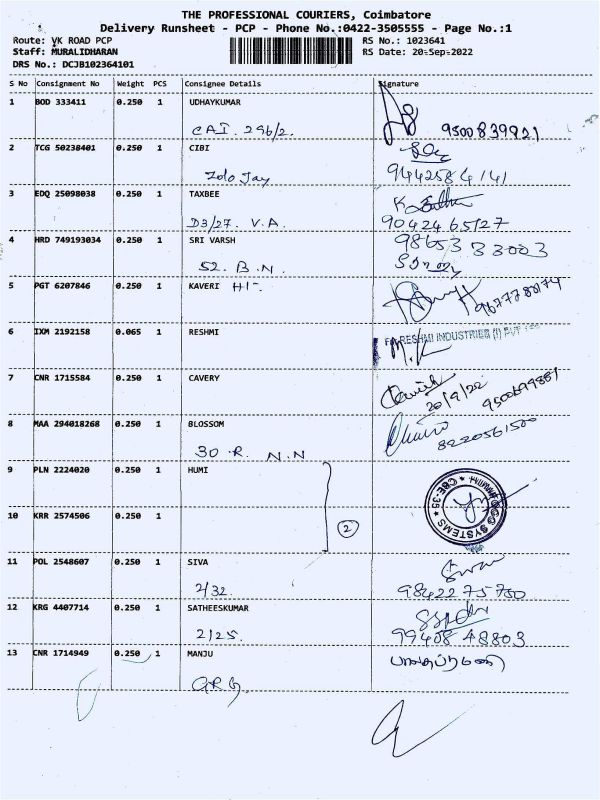 THE PROFESSIONAL COURIERS, Coimbatore
Delivery Runsheet - PCP - Phone No.:0422-3505555 - Page No.:1
Route: VK ROAD PCP RS No.: 1023641
Staff: MURALIDHARAN RS Date: 20-Sep-2022
DRS No.: DCJB102364101
S No Consignment No Weight PCS Consignee Details Signature
1 BOD 333411 0.250 1 UDHAYKUMAR
CAI. 296/2. 9500839921
2 TCG 50238401 0.250 1 CIBI
Zolo Jay 9442584141
3 EDQ 25098038 0.250 1 TAXBEE
D3/27. V.A. 9042465127
4 HRD 749193034 0.250 1 SRI VARSH 98653 33003
52. B.N.
5 PGT 6207846 0.250 1 KAVERI HI-
6 IXM 2192158 0.065 1 RESHMI
RESHMI INDUSTRIES (I) PVT
7 CNR 1715584 0.250 1 CAVERY
20/9/22
8 MAA 294018268 0.250 1 BLOSSOM
30.R. N.N 8220561500
9 PLN 2224020 0.250 1 HUMI
CBE-35
SYSTEMS
2
10 KRR 2574506 0.250 1
11 POL 2548607 0.250 1 SIVA
2/32. 9842275750
12 KRG 4407714 0.250 1 SATHEESKUMAR
2/25. 99408 48803
13 CNR 1714949 0.250 1 MANJU